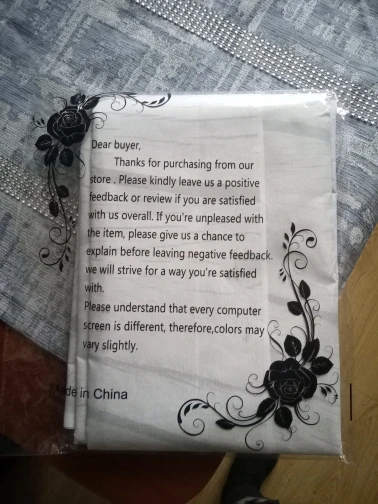 Dear buyer,
Thanks for purchasing from our
store . Please kindly leave us a positive
feedback or review if you are satisfied
with us overall. If you're unpleased with
the item, please give us a chance to
explain before leaving negative feedback.
we will strive for a way you're satisfied
with.
Please understand that every computer
screen is different, therefore,colors may
vary slightly.
in China